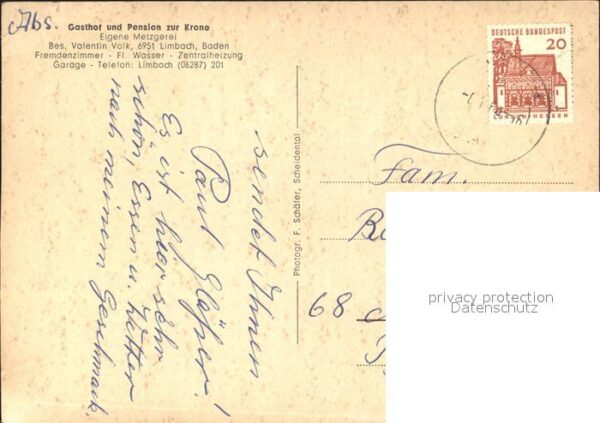 Abs.
Gasthof und Pension zur Krone
Eigene Metzgerei
Bes. Valentin Volk, 6951 Limbach, Baden
Fremdenzimmer - Fl. Wasser - Zentralheizung
Garage - Telefon: Limbach (06287) 201
sendet Ihnen
Paul Gläser!
Es ist hier sehr
schön, Essen u. Wetter
nach meinem Geschmack.
Photogr. F. Schäfer, Scheidental
DEUTSCHE BUNDESPOST
20
LORSCH/HESSEN
Fam.
68
privacy protection
Datenschutz